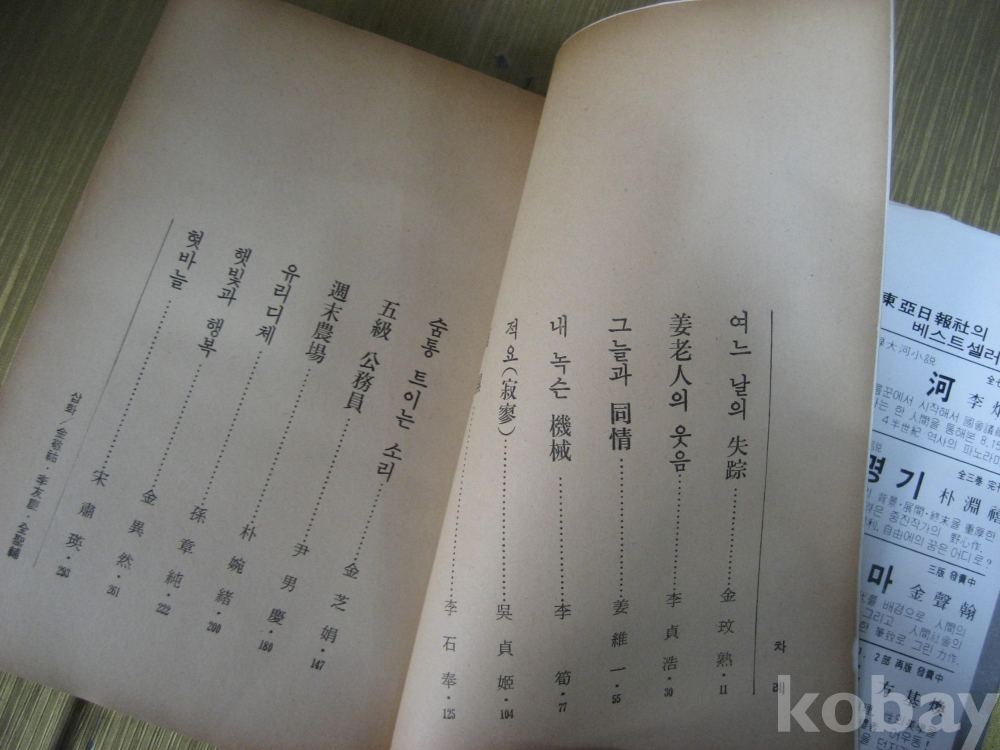 차례
여느 날의 失踪……金玟熟·11
姜老人의 웃음……李貞浩·30
그늘과 同情……姜維一·55
내 녹슨 機械……李筍·77
적요(寂寥)……吳貞姬·104
……李石奉·125
숨통 트이는 소리……金芝娟·147
五級 公務員……尹男慶·180
週末農場……朴婉緖·200
유리디체……孫章純·222
햇빛과 행복……金異然·261
혓바늘……宋肅瑛·293
삽화/金敬祐·李友慶·全聖輔
東亞日報社의
베스트셀러
大河小説
河 李炳
에서 시작해서 國會議
는 한 人間을 통해본 8.15
4半世紀 역사의 파노라마
명기 朴淵禧
全三巻 完
背景·展開·終末을 重厚한
은 중진작가의 野心作.
自由에의 꿈은 어디로?
三版 發賣中
마 金聲翰
를 배경으로 人間의
그리고 人間社會의
한 筆致로 그린 力作.
1, 2部 再版 發賣中
方基煥
kobay